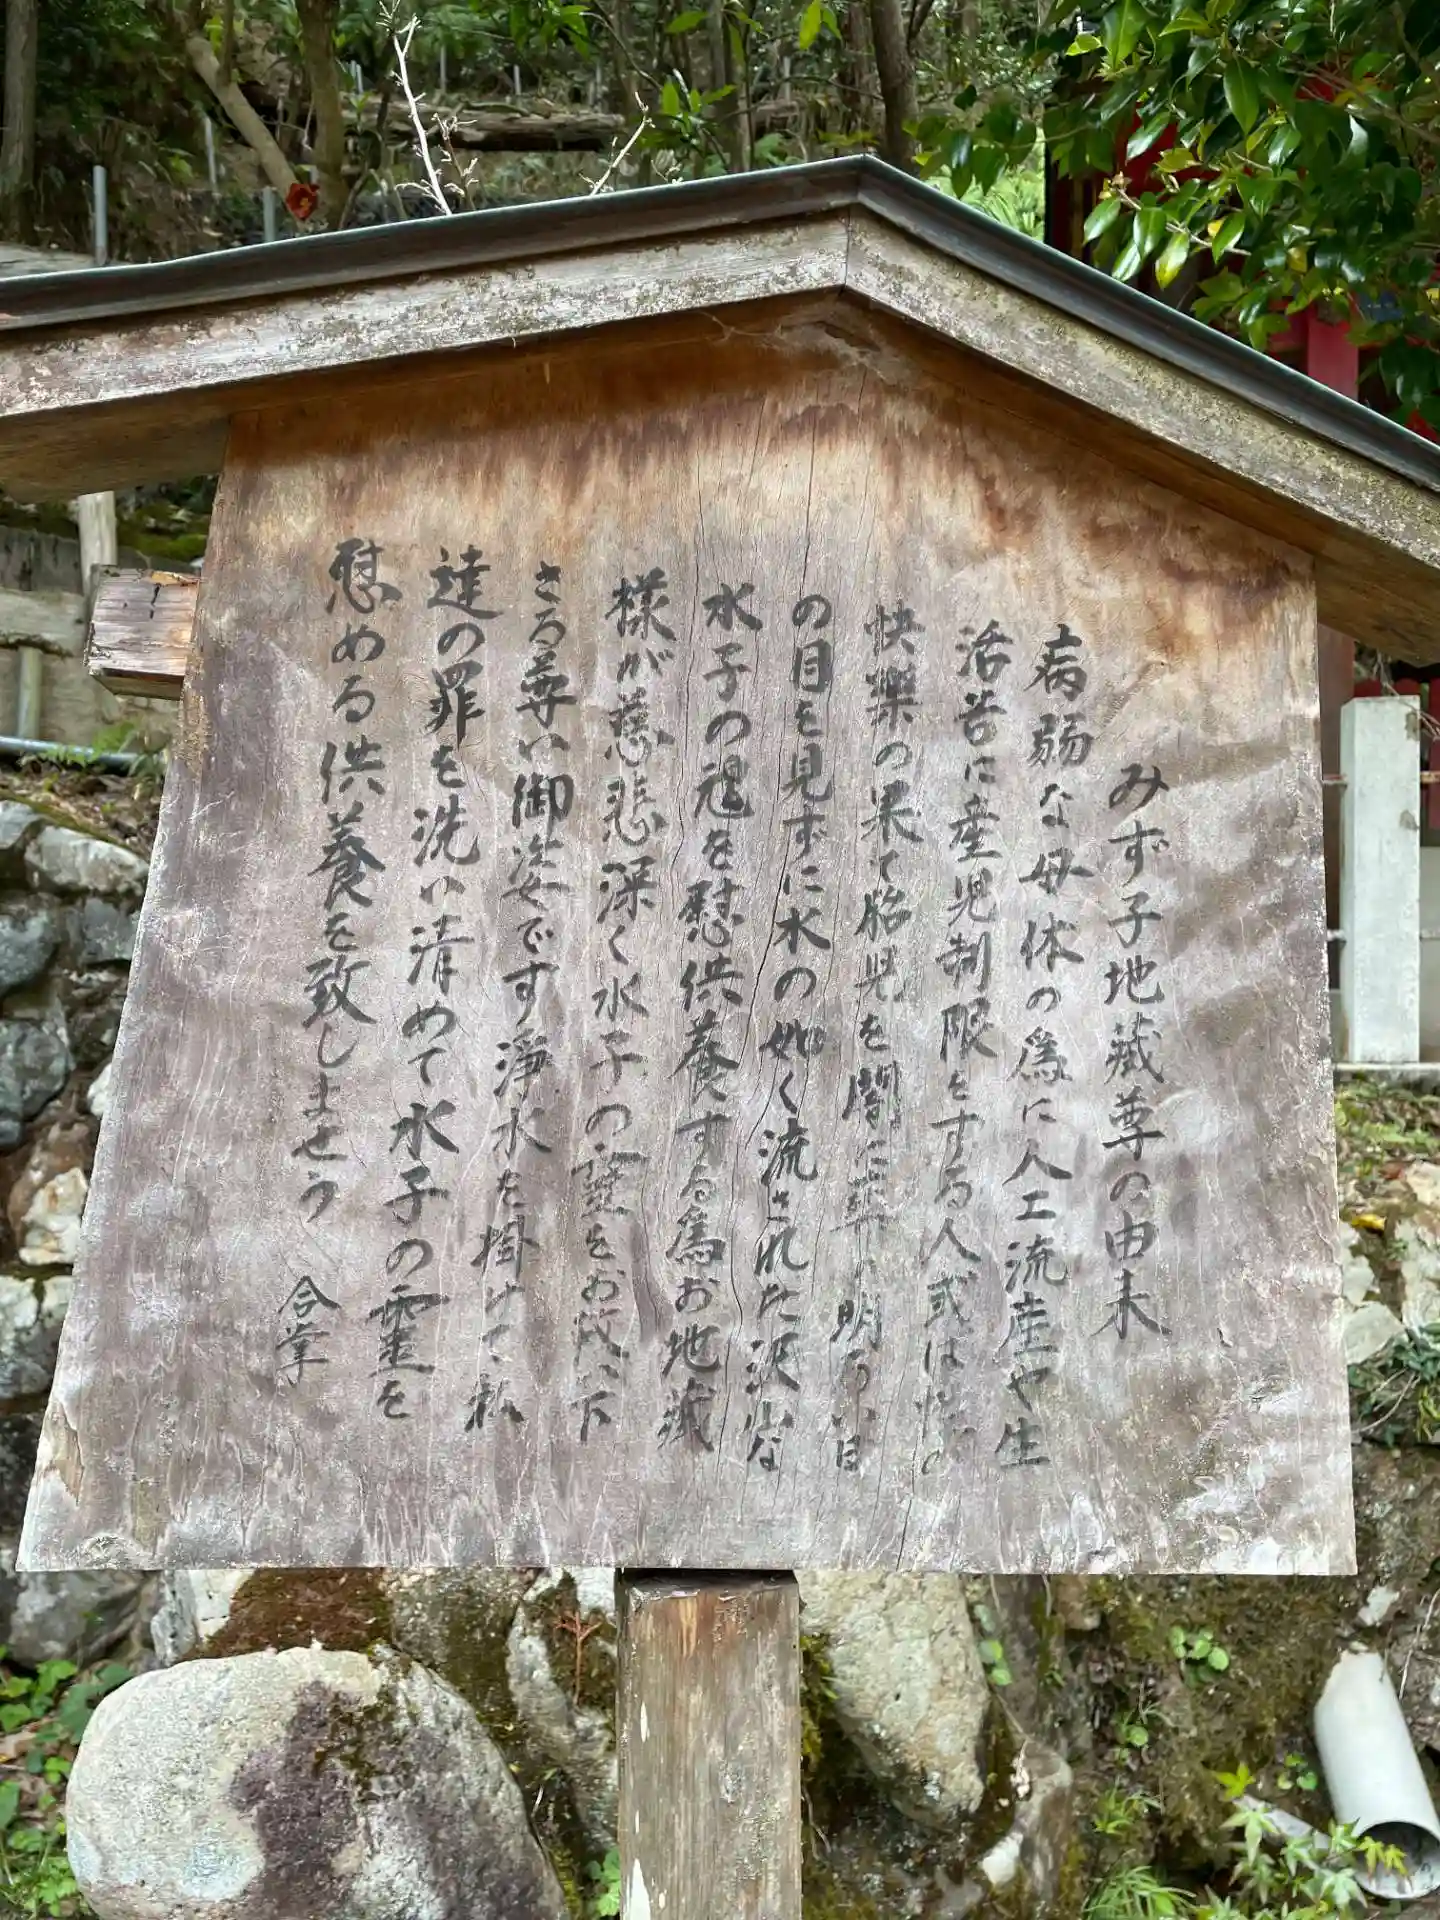 みず子地蔵尊の由来
病弱な母体の為に人工流産や生
活苦に産児制限をする人或は性の
快樂の果て胎児を闇に葬り明るい日
の目を見ずに水の如く流された沢山な
水子の魂を慰供養する為お地蔵
様が慈悲深く水子の霊をお救い下
さる尊い御姿です浄水を掛けて、私
達の罪を洗い清めて水子の霊を
慰める供養を致しませう 合掌